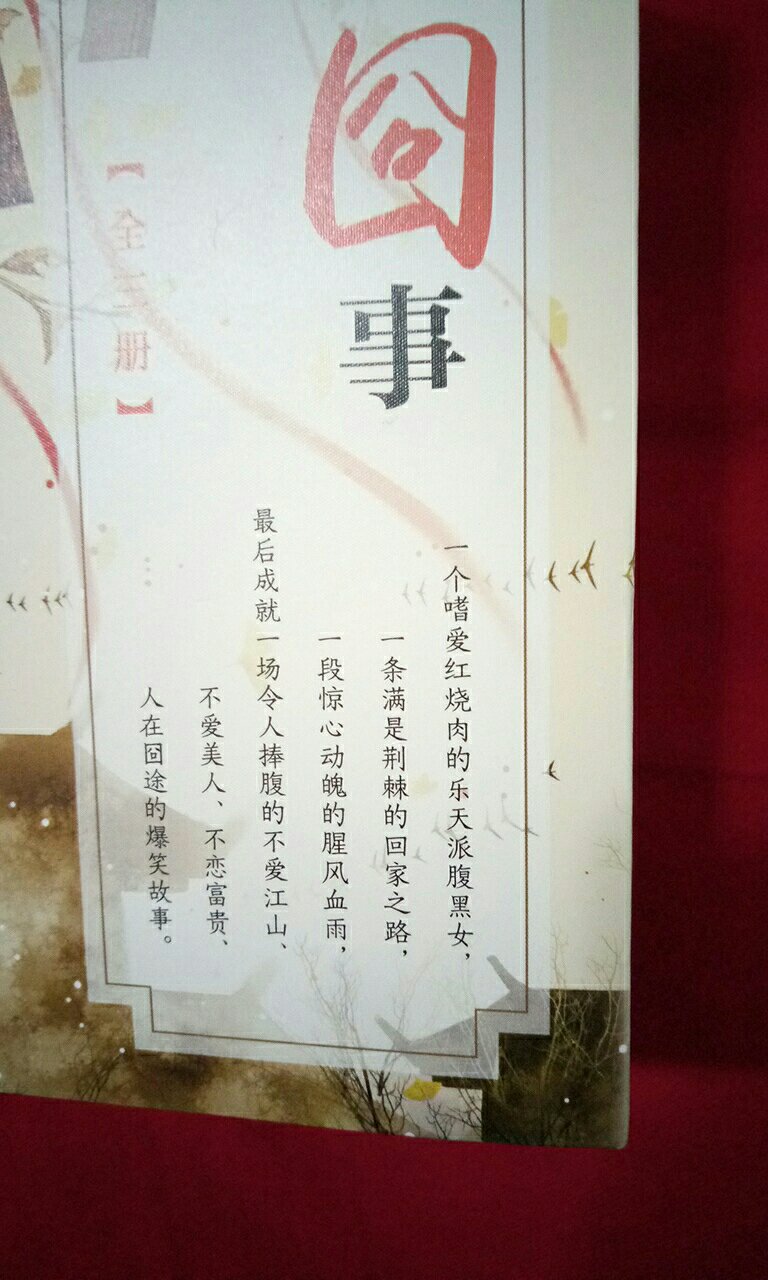 囧事
【全三册】
一个嗜爱红烧肉的乐天派腹黑女，
一条满是荆棘的回家之路，
一段惊心动魄的腥风血雨，
最后成就一场令人捧腹的不爱江山、
不爱美人、不恋富贵、
人在囧途的爆笑故事。